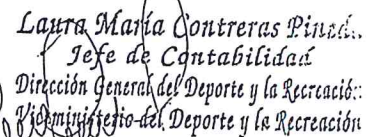 Laura María Contreras Pined..
Jefe de Contabilidad
Dirección General del Deporte y la Recreació::
Viceministerio del Deporte y la Recreación